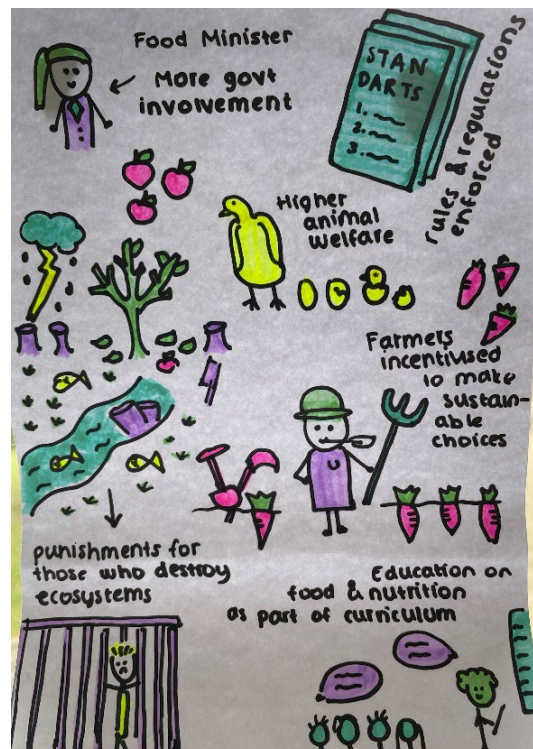 Food Minister
More govt
involvement
STAN
DARTS
1.
2.
3.
rules & regulations
enforced
Higher
animal
welfare
Farmers
incentivised
to make
sustain-
able
choices
punishments for
those who destroy
ecosystems
Education on
food & nutrition
as part of curriculum